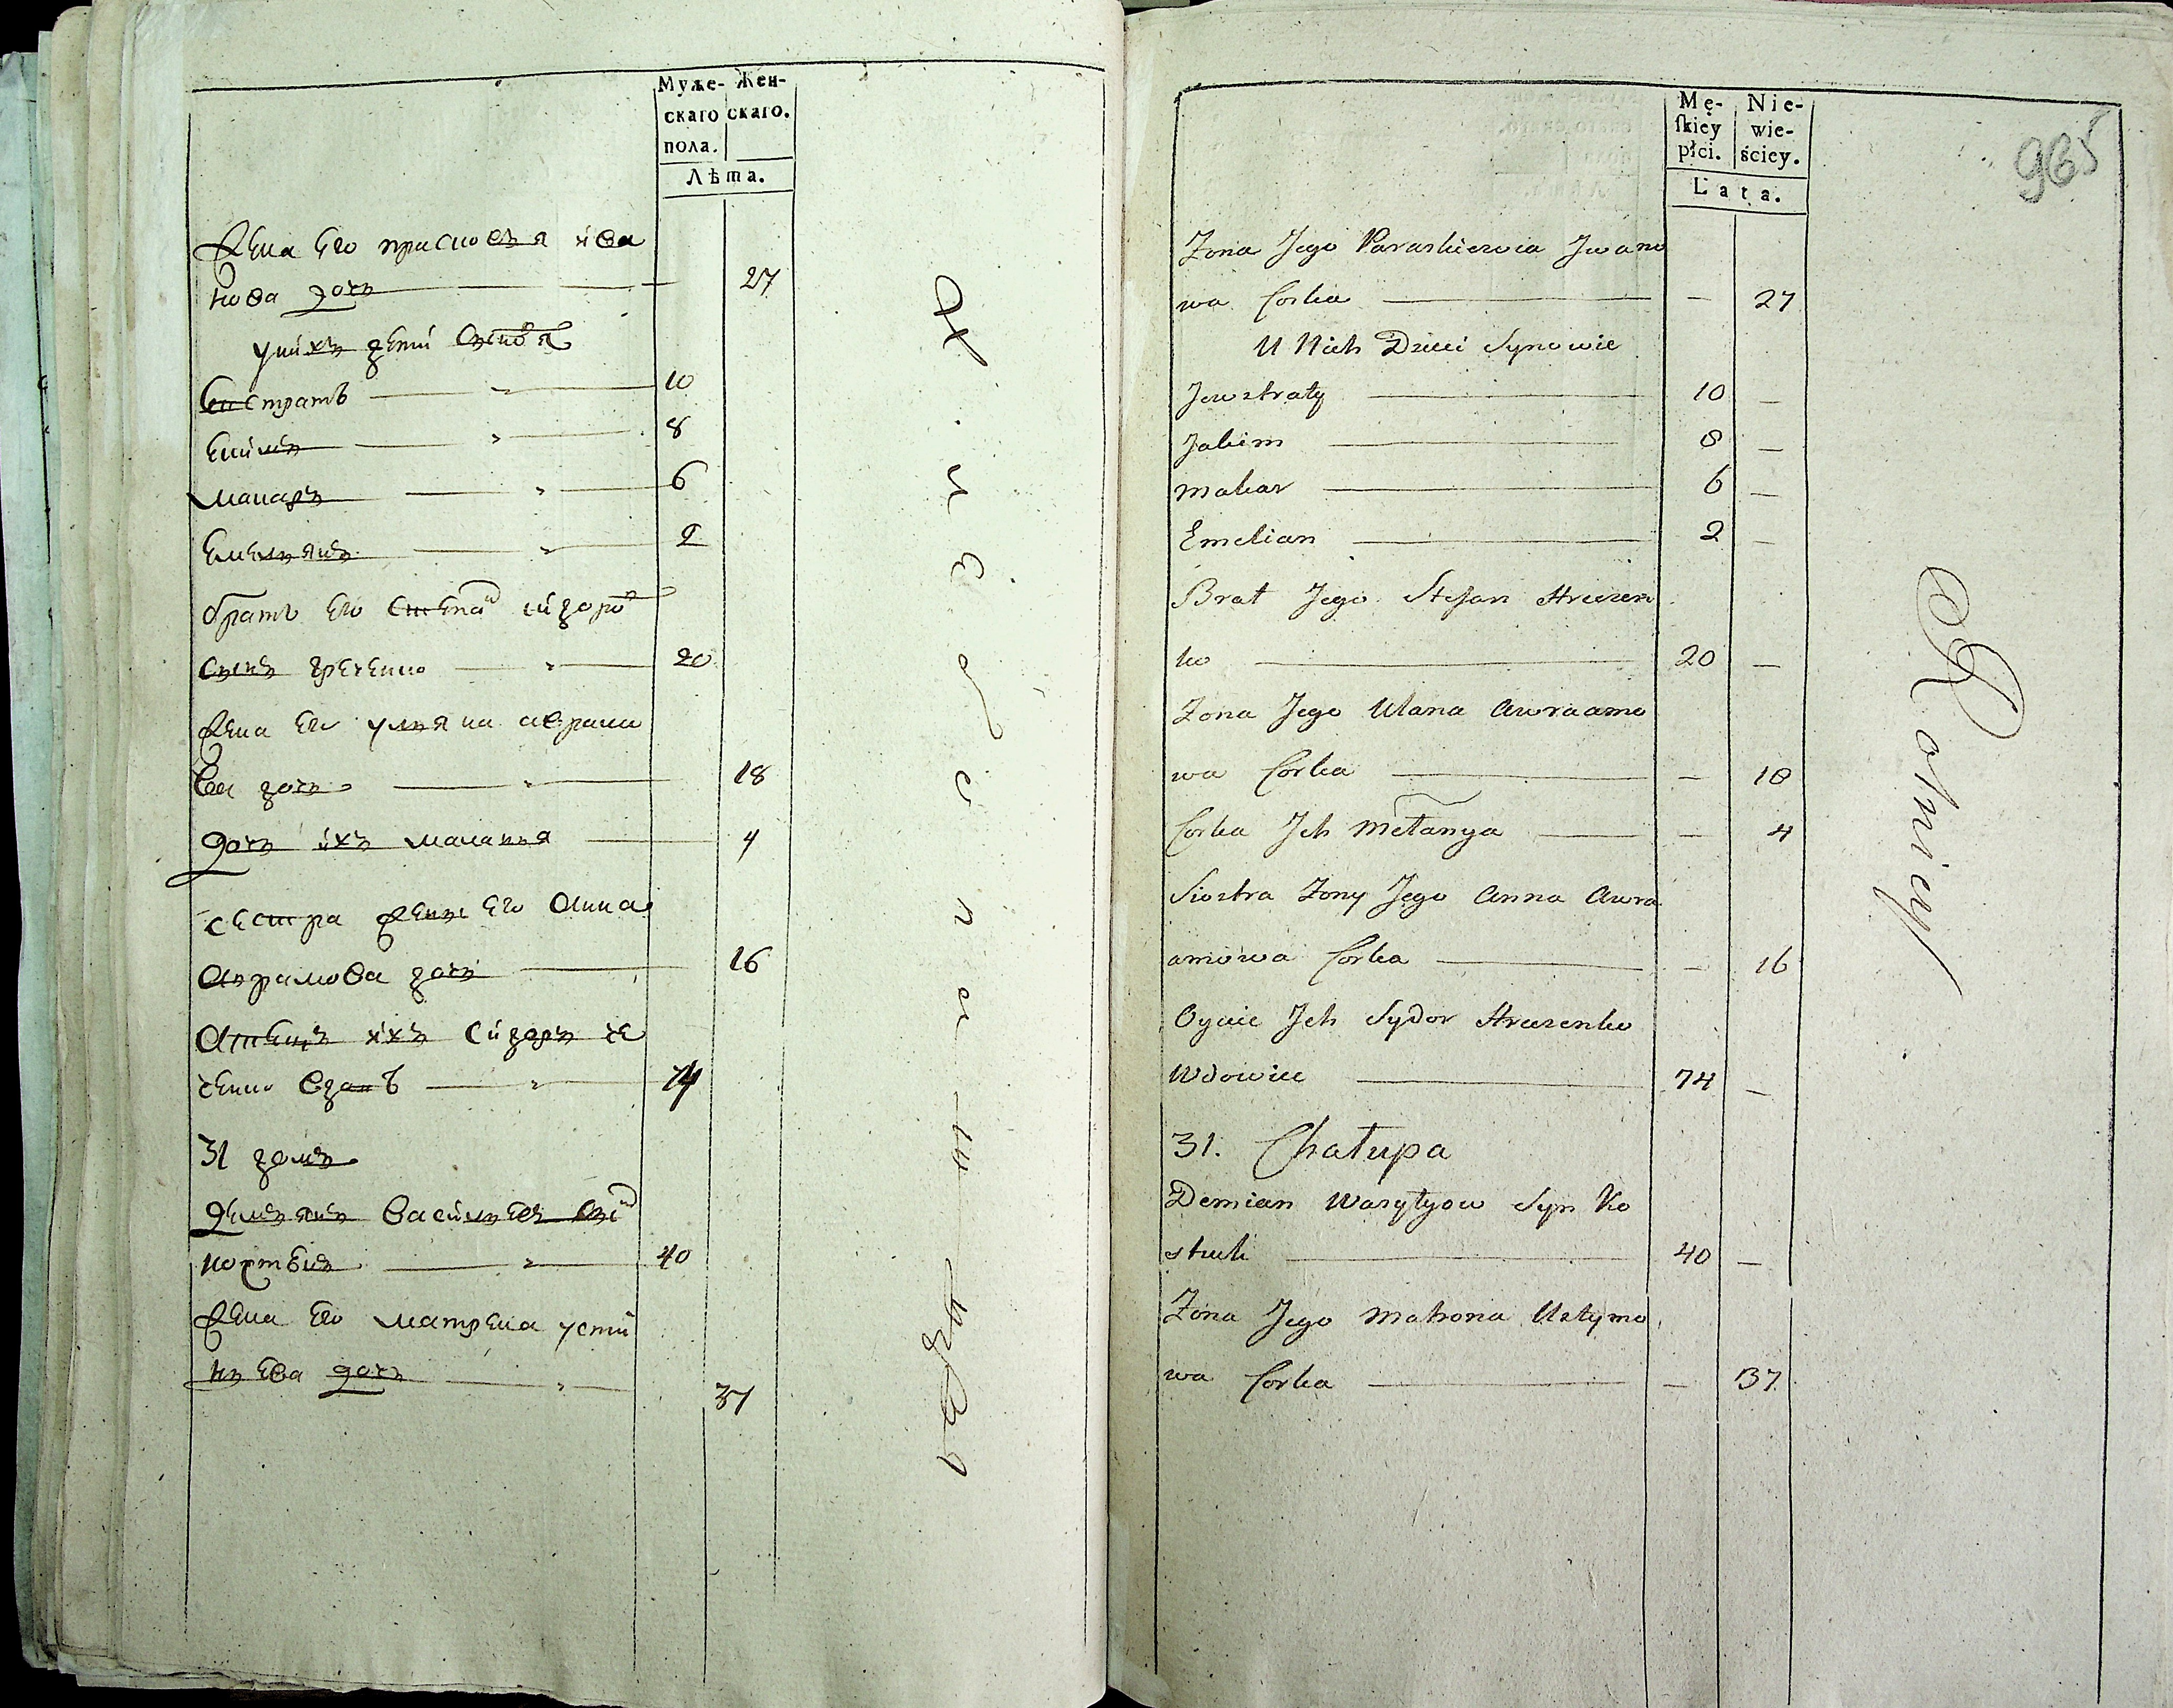 Муже-
скаго
пола.
Жен-
скаго.
Лѣта.
Жена его прасковья ива
нова дочь 27
у нихъ дети сыновя
Евстратъ 10
Екимъ 8
макаръ 6
Емельянъ 2
братъ его степан сидоров
сынъ греченко 20
Жена его ульяна аврамо
ва дочь 18
дочь ихъ маланья 4
сестра жены его Анна
Аврамова дочь 16
Отецъ ихъ сидоръ
вдовъ 74
31 домъ
демьянъ васильев сын
40
Жена его матрена усти
ньева дочь 37
Mę-
ſkiey
płci.
Nie-
wie-
ściey.
Lata.
965
Zona Jego Paraskiewia Jwano
wa Corka — 27
U Nich Dzieci Synowie
Jewstraty 10 —
Jakim 8 —
Makar 6 —
Emelian 2 —
Brat Jego Stefan Hreczen
ko 20 —
Zona Jego Ulana Awraamo
wa Corka — 18
Corka Jch Mełanya — 4
Siostra Zony Jego Anna Awra
amowa Corka — 16
Oyciec Jch Sydor Hreczenko
Wdowiec 74 —
31. Chałupa
Demian Wasylyow Syn Ko
stuk 40 —
Zona Jego Matrona Ustymo
wa Corka — 37